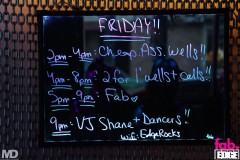 FRIDAY!!
2pm-4pm: Cheap. Ass. Wells!!
4pm-8pm: 2 for 1 wells + calls!!
5pm-9pm: Fab
9pm: VJ Shane + Dancers!!
wifi: EdgeRocks
MD
fab
EDGE